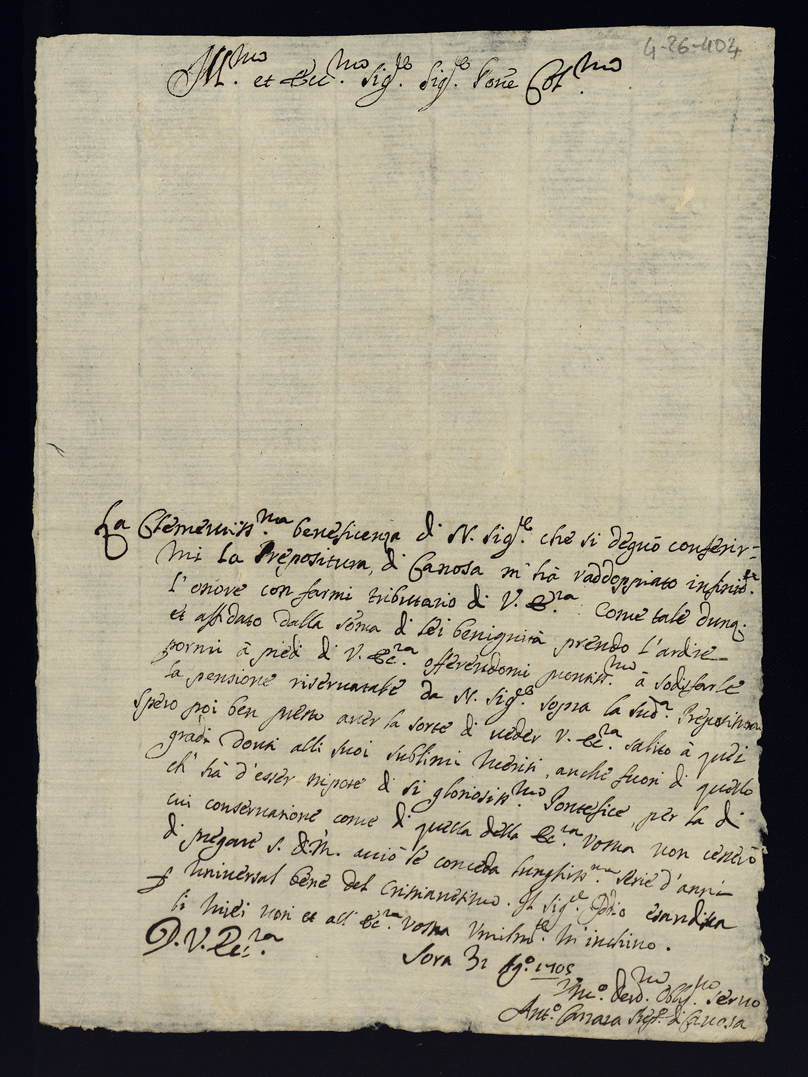 4-26-404
Ill.mo et Ecc.mo Sig.re Sig.re Pone Col.mo
La Clementiss.ma beneficenza di N. Sig.re che si degnò conferir=
mi la Prepositura, di Canosa m'hà raddoppiato infinit.te
l'onore con farmi tributario di V. E.za Come tale dunq.
et affidato dalla soma di lei benignità prendo l'ardire
pormi à piedi di V. Ec.za offerendomi prontiss.mo à sodisfarle
la pensione riservatale da N. Sig.re sopra la sud.a Prepositura
spero poi ben presto aver la sorte di veder V. Ec.za salito à quei
gradi dovuti alli suoi sublimi meriti, anche fuori di quello
ch'hà d'esser nipote di si gloriosiss.mo Pontefice, per la di
cui conservatione come di quella della Ec.za Vostra non cesserò
di pregare S. D. M. acciò le conceda lunghiss.ma serie d'anni
p universal bene del Cristianesimo. Il Sig.re Iddio esaudisca
li miei voti et all' Ec.za Vostra Umilm.te m'inchino.
D. V. Ecc.za
Sora 31 Ag.o 1705
Um.o Dev.mo Obl.mo Servo
Ant.o Carrara Prep.o di Canosa